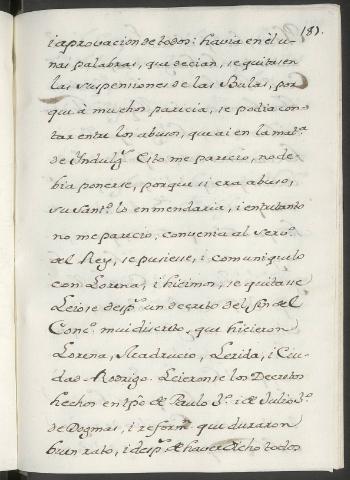 181.
i aprovacion de todos: havia en el u-
nas palabras, que decian, se quitasen
las suspensiones de las Bulas, por
que à muchos parecia, se podia con-
tar entre los abusos, que ai en la mat.ª
de Yndulg.s Esto me parecio, no de-
bia ponerse, porque si era abuso,
su Sant.d lo enmendaria, i entretanto
no me parecio, convenia al serv.º
del Rey, se pusiese, i comuniquelo
con Lorena, i hicimos, se quitasse
Leiose desp.s un decreto del fin del
Conc.º mui discreto, que hicieron
Lorena, Madrucio, Lerida, i Ciu-
dad-Rodrigo. Leieronse los Decretos
hechos en tpõ de Paulo 3.º i de Julio 3.º
de Dogmas, i reform.n que duraron
buen rato, i desp.s de haver dicho todos